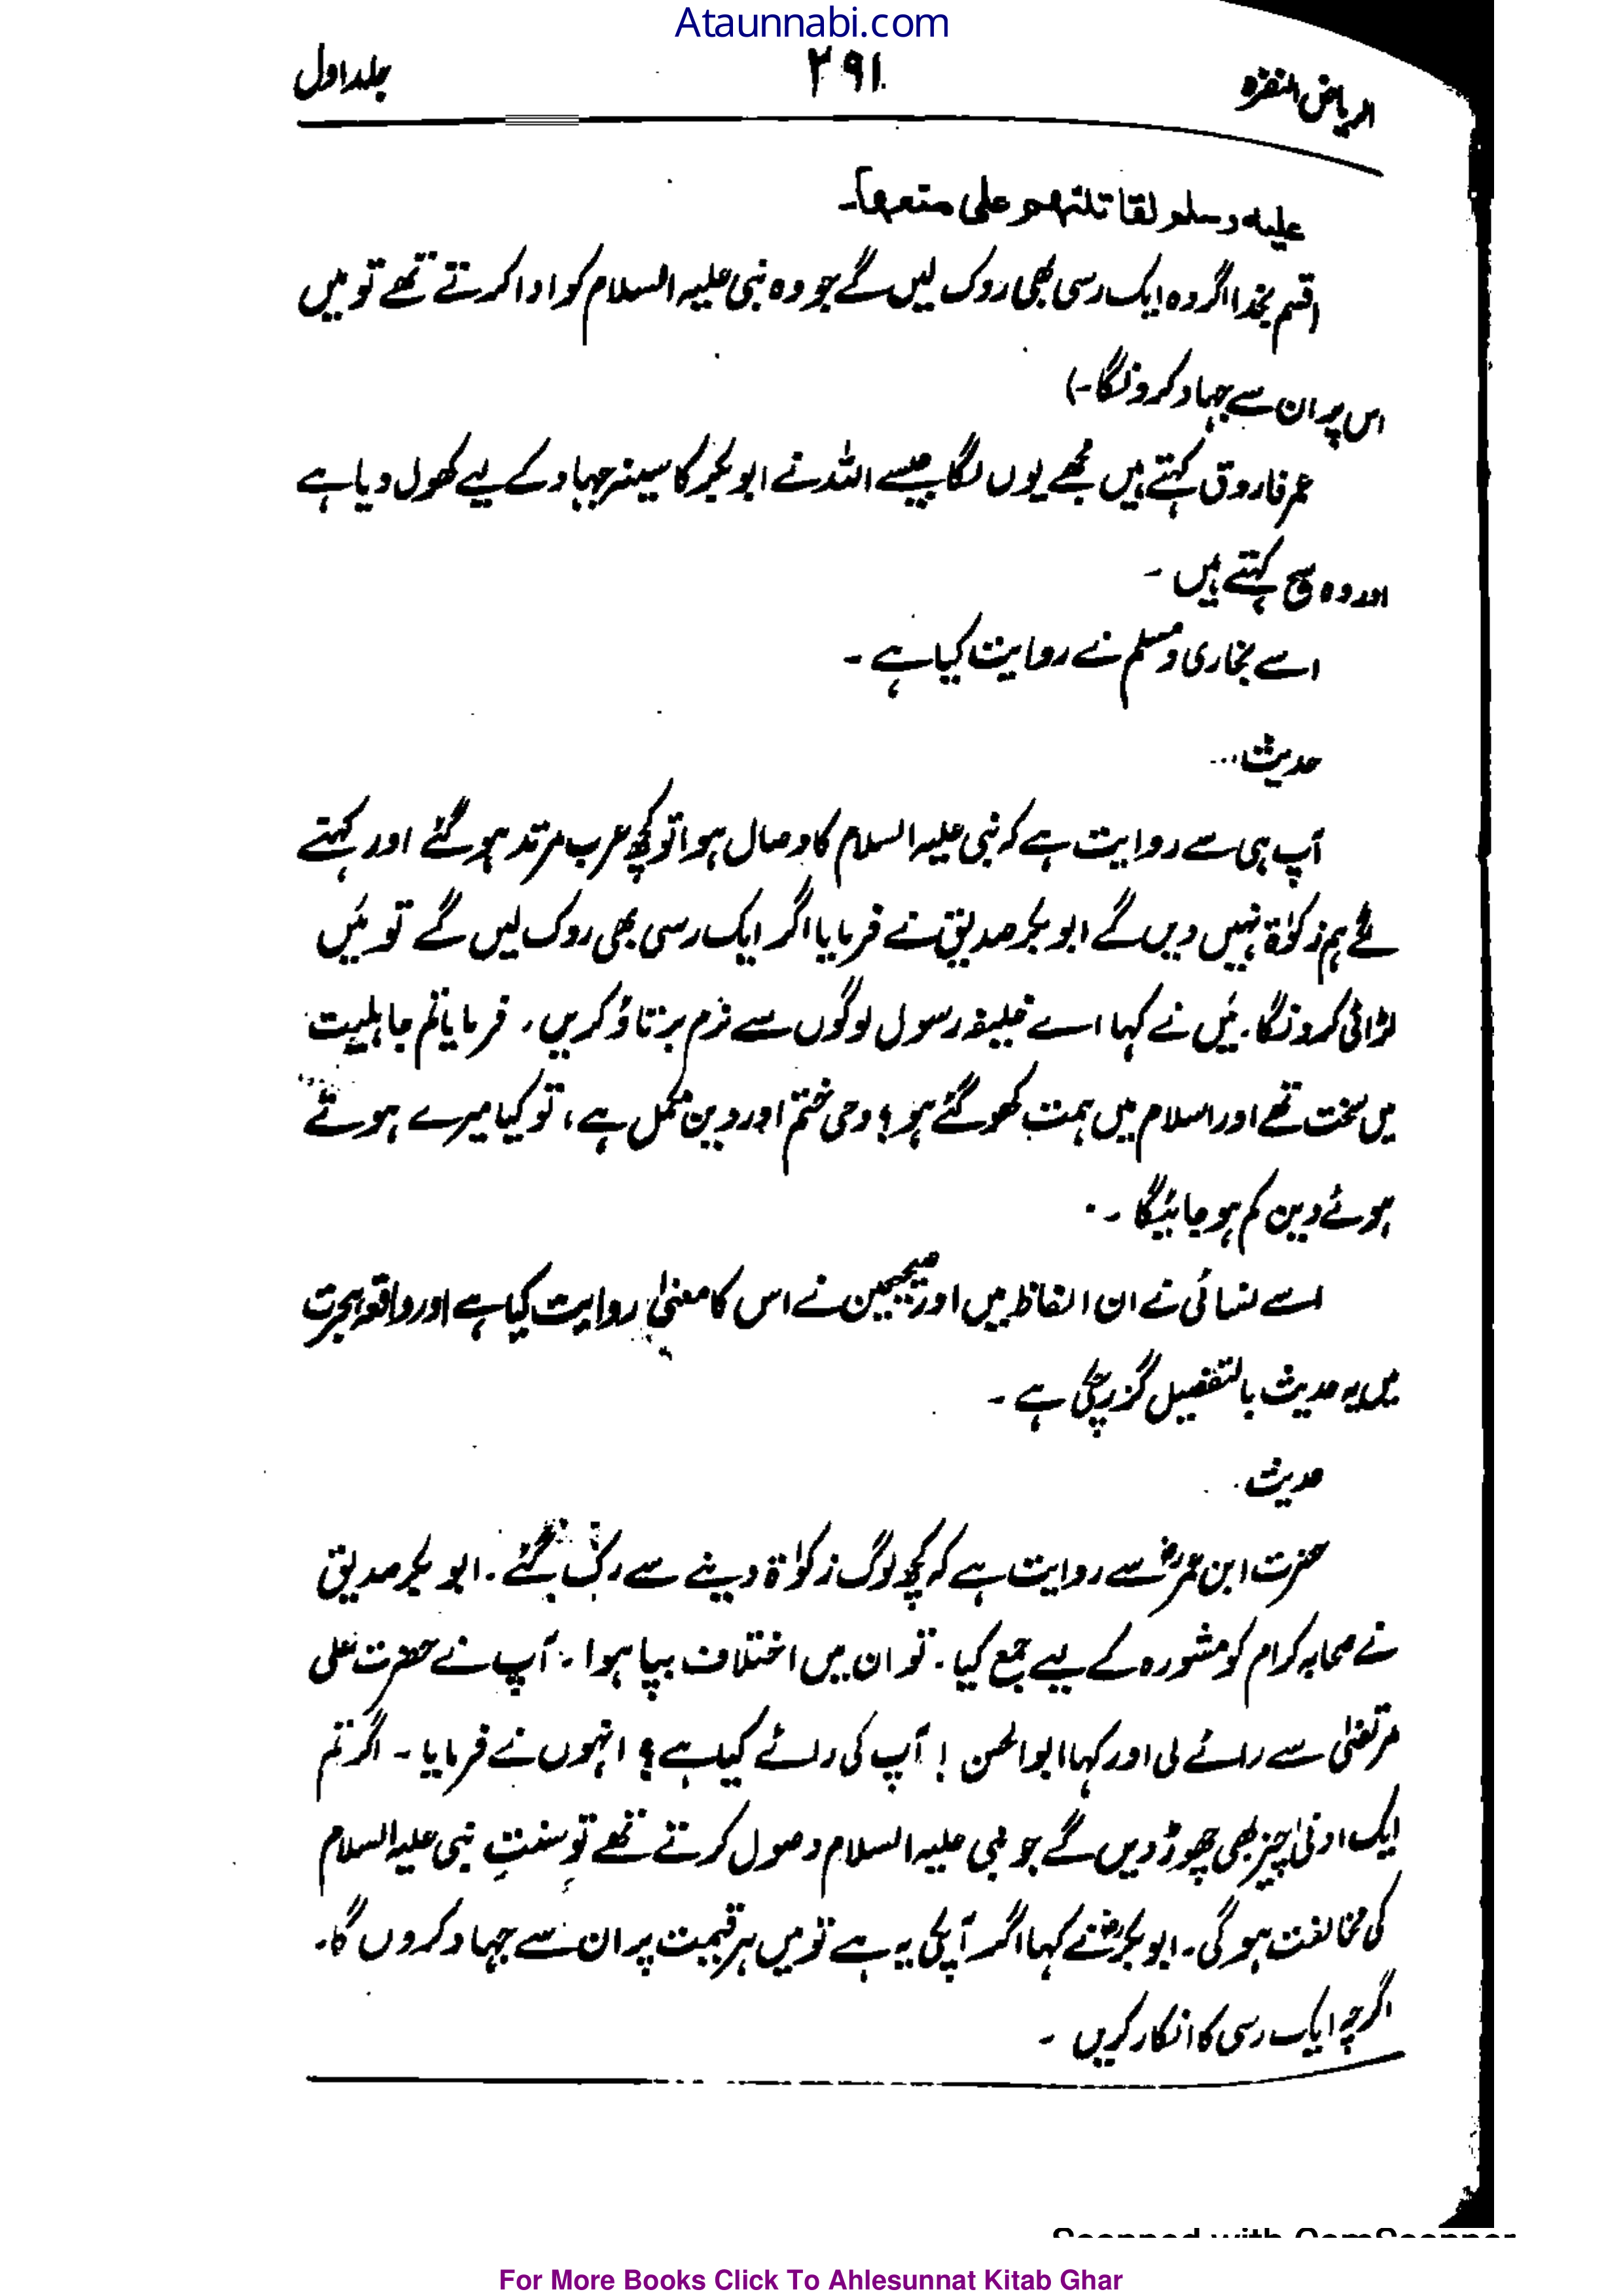 Ataunnabi.com
الریاض النفرہ ۲۹۱ جلد اول
علیه وسلم لقاتلتهم علی منعها۔
(قسم بخدا اگر وہ ایک رسی بھی روک لیں گے جو وہ نبی علیہ السلام کو ادا کرتے تھے تو میں
اس پر ان سے جہاد کرونگا۔)
عمر فاروق کہتے ہیں مجھے یوں لگا جیسے اللہ نے ابوبکر کا سینہ جہاد کے لیے کھول دیا ہے
اور وہ سچ کہتے ہیں ۔
اسے بخاری و مسلم نے روایت کیا ہے ۔
حدیث...
آپ ہی سے روایت ہے کہ نبی علیہ السلام کا وصال ہوا تو کچھ عرب مرتد ہو گئے اور کہتے
لگے ہم زکوٰۃ نہیں دیں گے ابوبکر صدیقؓ نے فرمایا اگر ایک رسی بھی روک لیں گے تو مَیں
لڑائی کرونگا۔ مَیں نے کہا اے خلیفہ رسول لوگوں سے نرم برتاؤ کریں۔ فرمایا تم جاہلیت
میں سخت تھے اور اسلام میں ہمت کھو گئے ہو؟ وحی ختم اور دین مکمل ہے، تو کیا میرے ہوتے
ہوئے دین کم ہو جائیگا ۔
اسے نسائی نے ان الفاظ میں اور صحیحین نے اس کا معنیٰ روایت کیا ہے اور واقعہ ہجرت
میں یہ حدیث بالتفصیل گزر چکی ہے ۔
حدیث
حضرت ابن عمرؓ سے روایت ہے کہ کچھ لوگ زکوٰۃ دینے سے رک گئے۔ ابوبکر صدیق
نے صحابہ کرام کو مشورہ کے لیے جمع کیا۔ تو ان میں اختلاف بپا ہوا۔ آپ نے حضرت علی
مرتضیٰ سے رائے لی اور کہا ابوالحسن ! آپ کی رائے کیا ہے؟ انہوں نے فرمایا ۔ اگر تم
ایک ادنیٰ چیز بھی چھوڑ دیں گے جو نبی علیہ السلام وصول کرتے تھے تو سنتِ نبی علیہ السلام
کی مخالفت ہو گی۔ ابوبکرؓ نے کہا اگر آپکی یہ ہے تو میں ہر قیمت پر ان سے جہاد کروں گا۔
اگرچہ ایک رسی کا انکار کریں ۔
Scanned with CamScanner
For More Books Click To Ahlesunnat Kitab Ghar